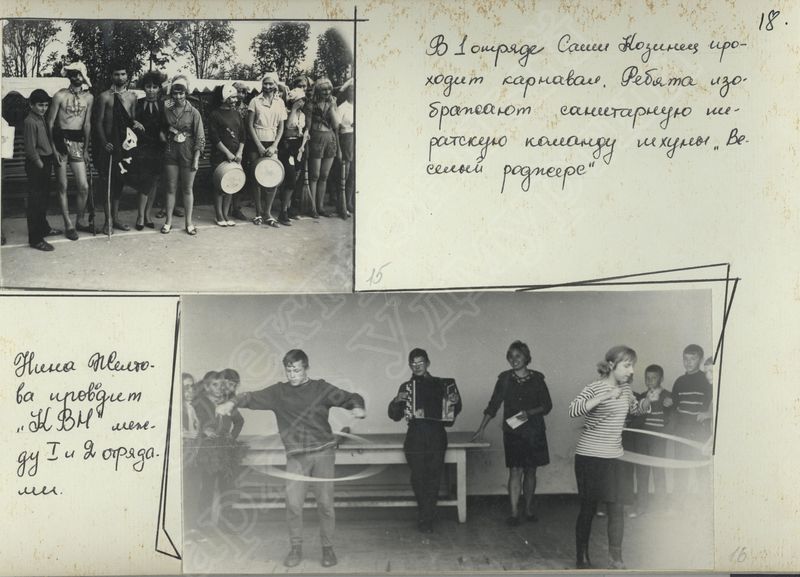 18.
В 1 отряде Саши Козинец про-
ходит карнавал. Ребята изо-
бражают санитарную пи-
ратскую команду шхуны „Ве-
селый роджерс"
15
Нина Желто-
ва проводит
„КВН" меж-
ду I и 2 отряда-
ми.
16